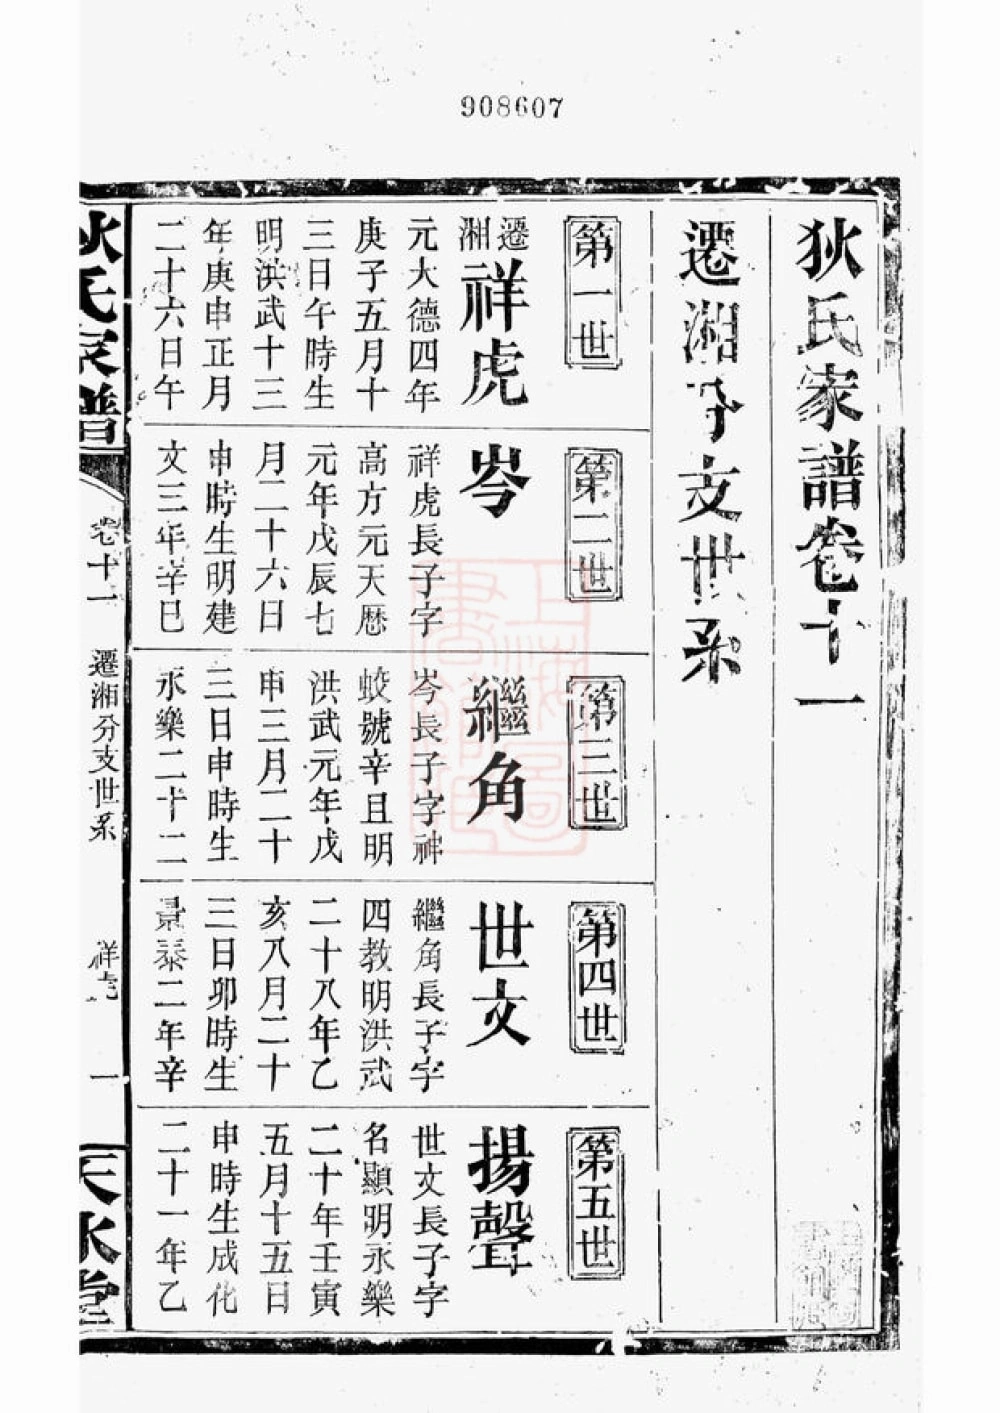 908607
狄氏家譜卷十一
遷湘分支世系
第一世
遷湘
祥虎
元大德四年
庚子五月十
三日午時生
明洪武十三
年庚申正月
二十六日午
第二世
岑
祥虎長子字
高方元天曆
元年戊辰七
月二十六日
申時生明建
文三年辛巳
第三世
繼角
岑長子字神
蛟號辛且明
洪武元年戊
申三月二十
三日申時生
永樂二十二
第四世
世文
繼角長子字
四教明洪武
二十八年乙
亥八月二十
三日卯時生
景泰二年辛
第五世
揚聲
世文長子字
名顯明永樂
二十年壬寅
五月十五日
申時生成化
二十一年乙
狄氏家譜
卷十一
遷湘分支世系
祥虎
一
天水堂